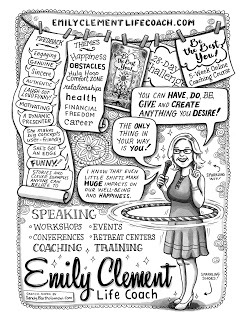 EMILYCLEMENTLIFECOACH.COM
FEEDBACK
Engaging
Genuine
Sincere
MOTIVATING
A DYNAMIC
PRESENTER
SHE'S GOT
AN EDGE
FUNNY!
STORIES AND
CLEVER EXAMPLES
ANYONE CAN
RELATE
THEMES
Happiness
OBSTACLES
Hula Hoop
COMFORT ZONE
relationships
health
FINANCIAL
FREEDOM
career
28-Day
Challenge
Be
the Best
You!
5-Week Online
Coaching Course
YOU CAN HAVE, DO, BE,
GIVE AND CREATE
ANYTHING YOU DESIRE!
THE ONLY
THING IN
YOUR WAY
IS YOU!
I KNOW THAT EVEN
LITTLE SHIFTS MAKE
HUGE IMPACTS ON
OUR WELL-BEING
AND HAPPINESS.
SPEAKING
WORKSHOPS • EVENTS
• CONFERENCES • RETREAT CENTERS
COACHING • TRAINING
Emily Clement
Life Coach
SPARKLING
SHOES!